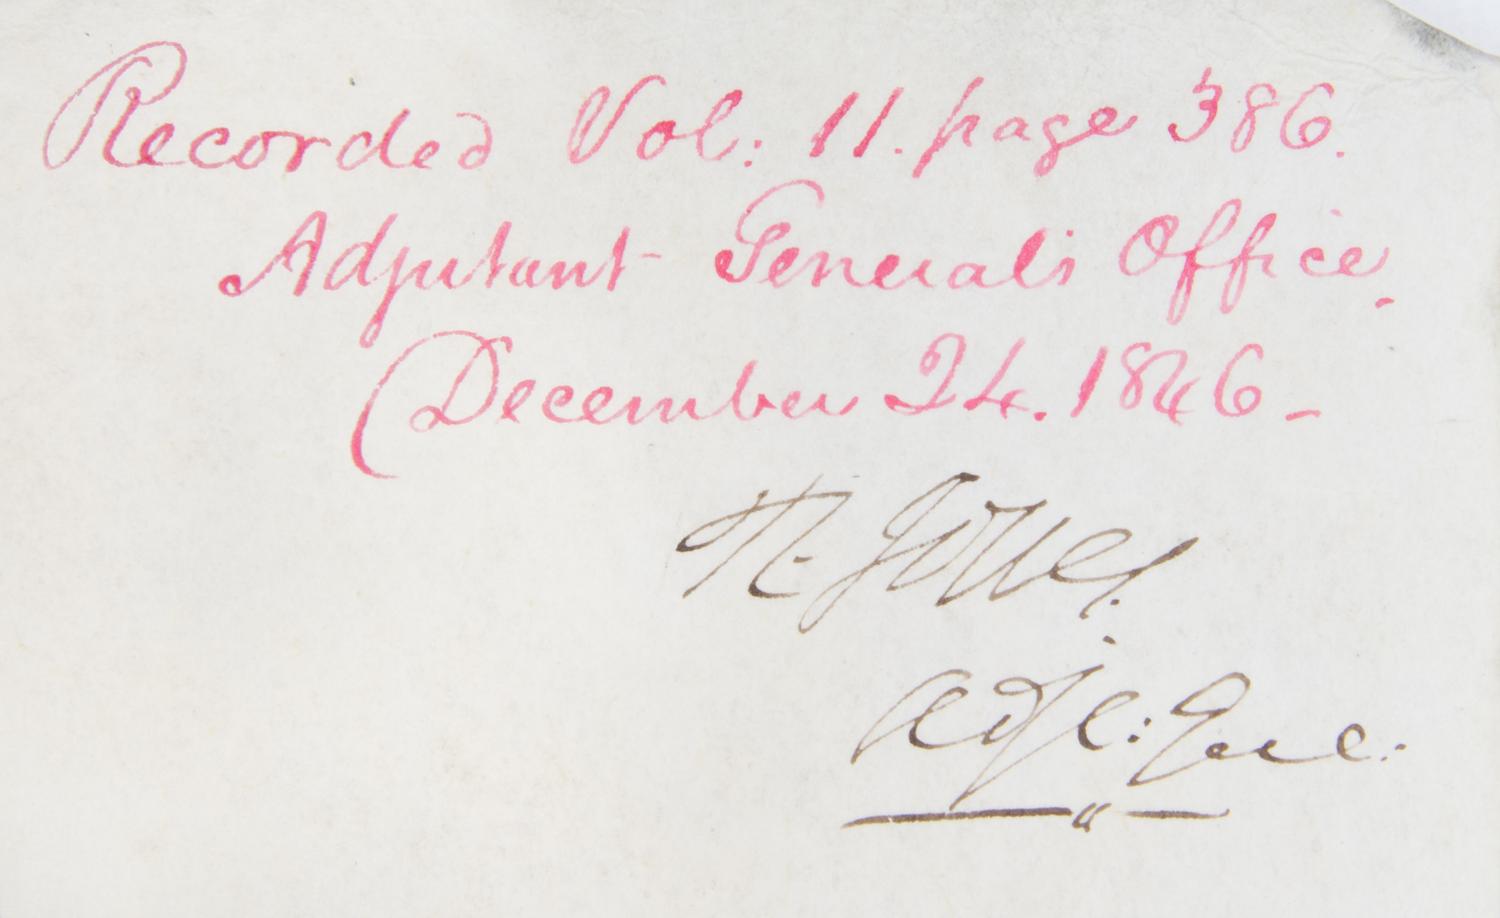 Recorded Vol: 11. page 386.
Adjutant General's Office.
December 24. 1846 -
R. Jones.
Adjt: Genl.